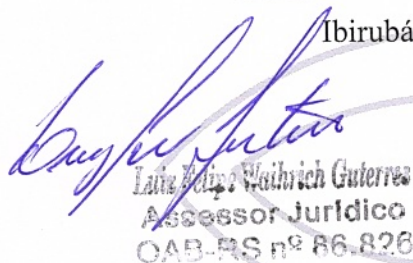 Ibirubá
Luiz Felipe Waihrich Guterres
Assessor Jurídico
OAB-RS nº 86.826